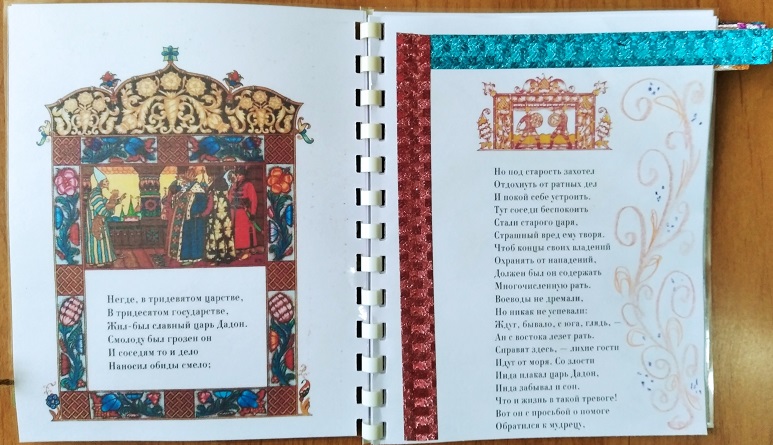 Негде, в тридевятом царстве,
В тридесятом государстве,
Жил-был славный царь Дадон.
Смолоду был грозен он
И соседям то и дело
Наносил обиды смело;
Но под старость захотел
Отдохнуть от ратных дел
И покой себе устроить.
Тут соседи беспокоить
Стали старого царя,
Страшный вред ему творя.
Чтоб концы своих владений
Охранять от нападений,
Должен был он содержать
Многочисленную рать.
Воеводы не дремали,
Но никак не успевали:
Ждут, бывало, с юга, глядь, —
Ан с востока лезет рать.
Справят здесь, — лихие гости
Идут от моря. Со злости
Инда плакал царь Дадон,
Инда забывал и сон.
Что и жизнь в такой тревоге!
Вот он с просьбой о помоге
Обратился к мудрецу,